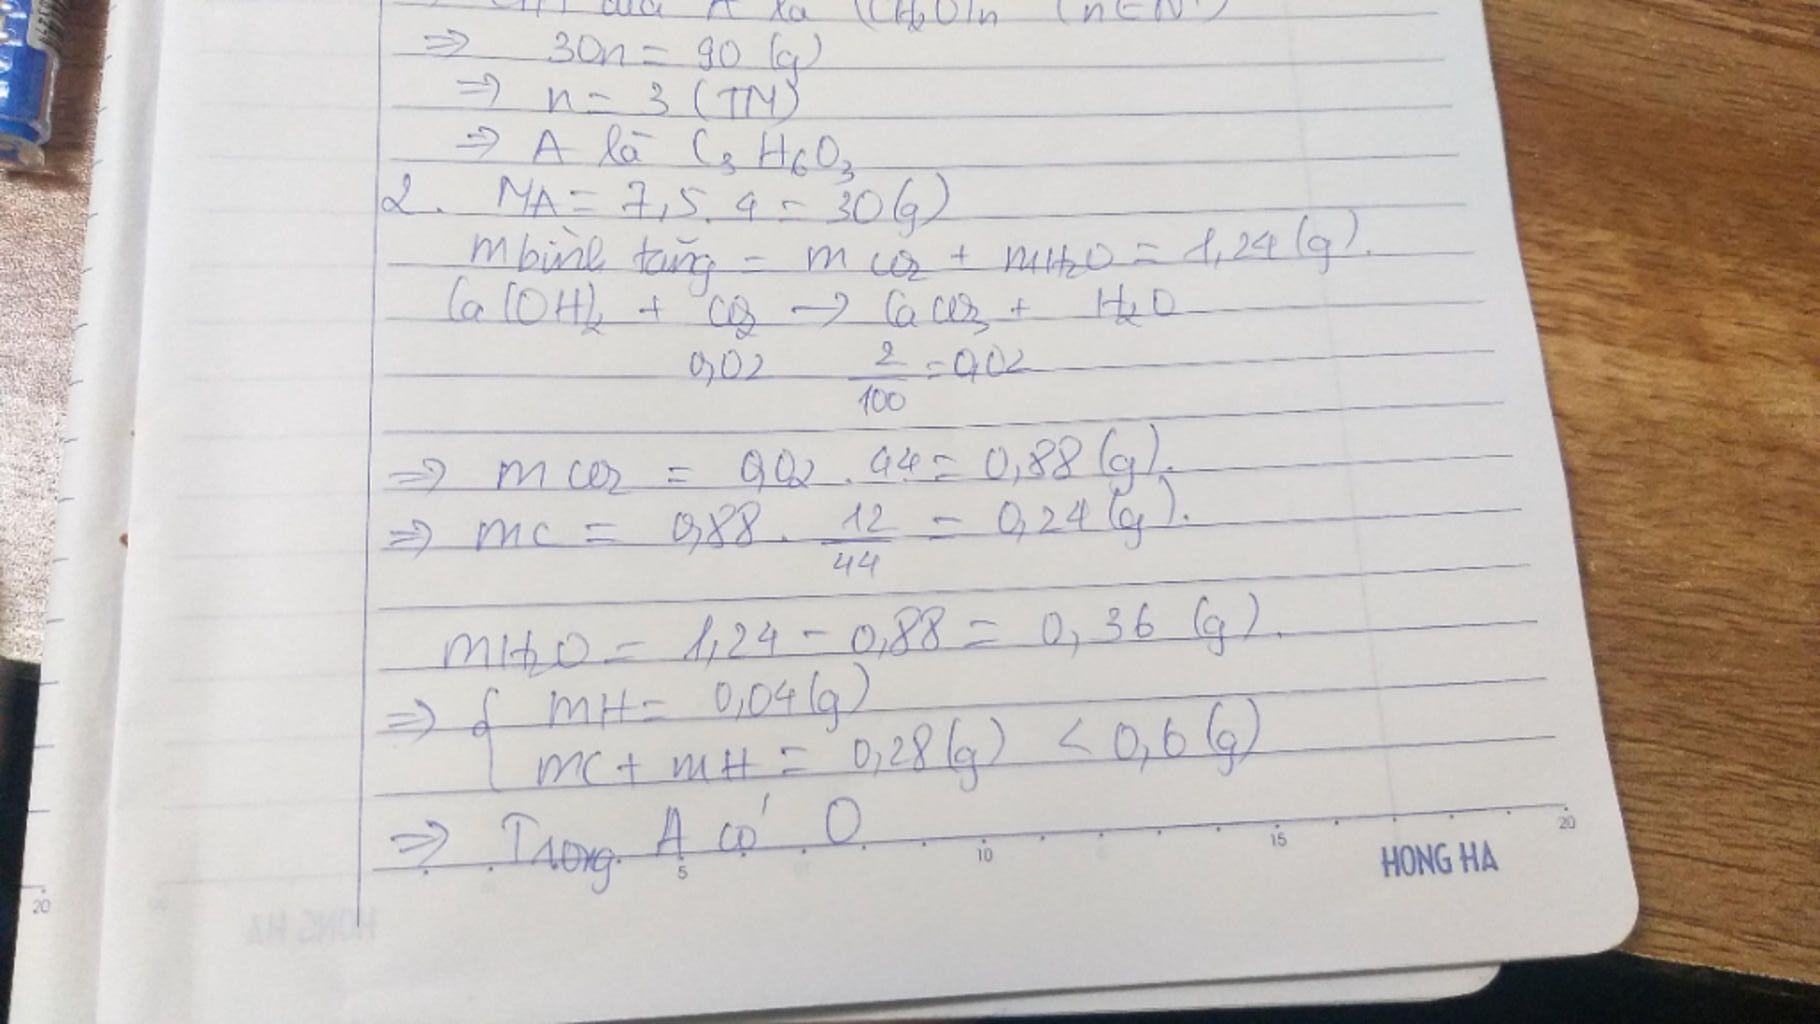 ⇒ CTPT của A là (CH₂O)n (n ∈ N*)
⇒ 30n = 90 (g)
⇒ n = 3 (TM)
⇒ A là C₃H₆O₃
2. MA = 7,5.4 = 30(g)
m bình tăng = m CO₂ + mH₂O = 1,24 (g).
Ca(OH)₂ + CO₂ → CaCO₃ + H₂O
0,02 2/100 = 0,02
⇒ m CO₂ = 0,02 . 44 = 0,88 (g).
⇒ mC = 0,88 . 12/44 = 0,24 (g).
mH₂O = 1,24 - 0,88 = 0,36 (g).
⇒ { mH = 0,04(g)
mC + mH = 0,28(g) < 0,6 (g)
⇒ Trong A có O
5 10 15 20
HONG HA
20